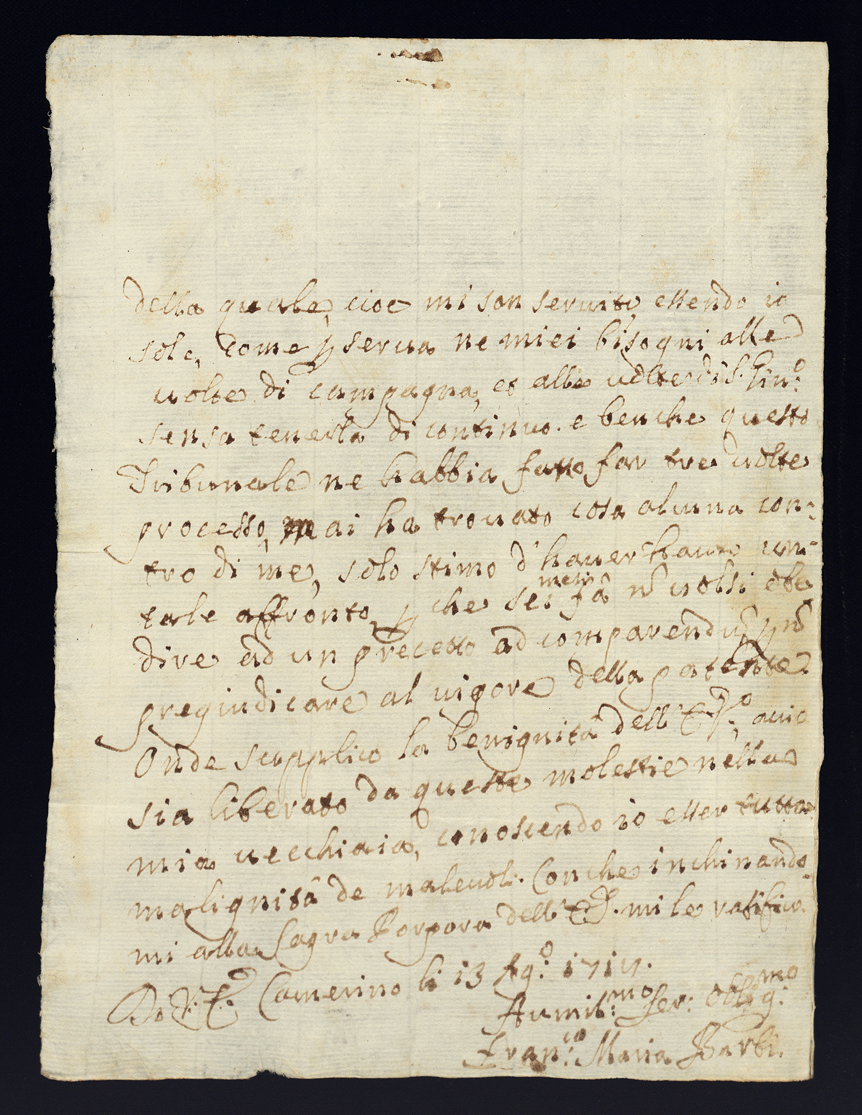 della quale, cioe mi son seruito, essendo io
solo, come p serua ne miei bisogni alle
uolte di campagna, et alle uolte di S. Gin:o
sensa tenerla di continuo. e benche questo
Tribunale ne habbia fatto far tre uolte
processo, mai ha trouato cosa alcuna con:
tro di me, solo stimo d'hauer hauuto un
tale affronto, p che sei mesi fà nō uolsi obe
dire ad un precetto ad comparendū, p nō
pregiudicare al uigore della patente.
Onde supplico la benignità dell' acio
sia liberato da queste molestie nella
mia uecchiaia, conoscendo io esser tutta
malignità de maleuoli. Con che inchinando
mi alla Sagra Porpora dell' E. S. mi le ratifico
Di V. E. Camerino li 13 Ag:o 1717.
Humil:mo Ser: Obblig:mo
Fran:co Maria Barbi